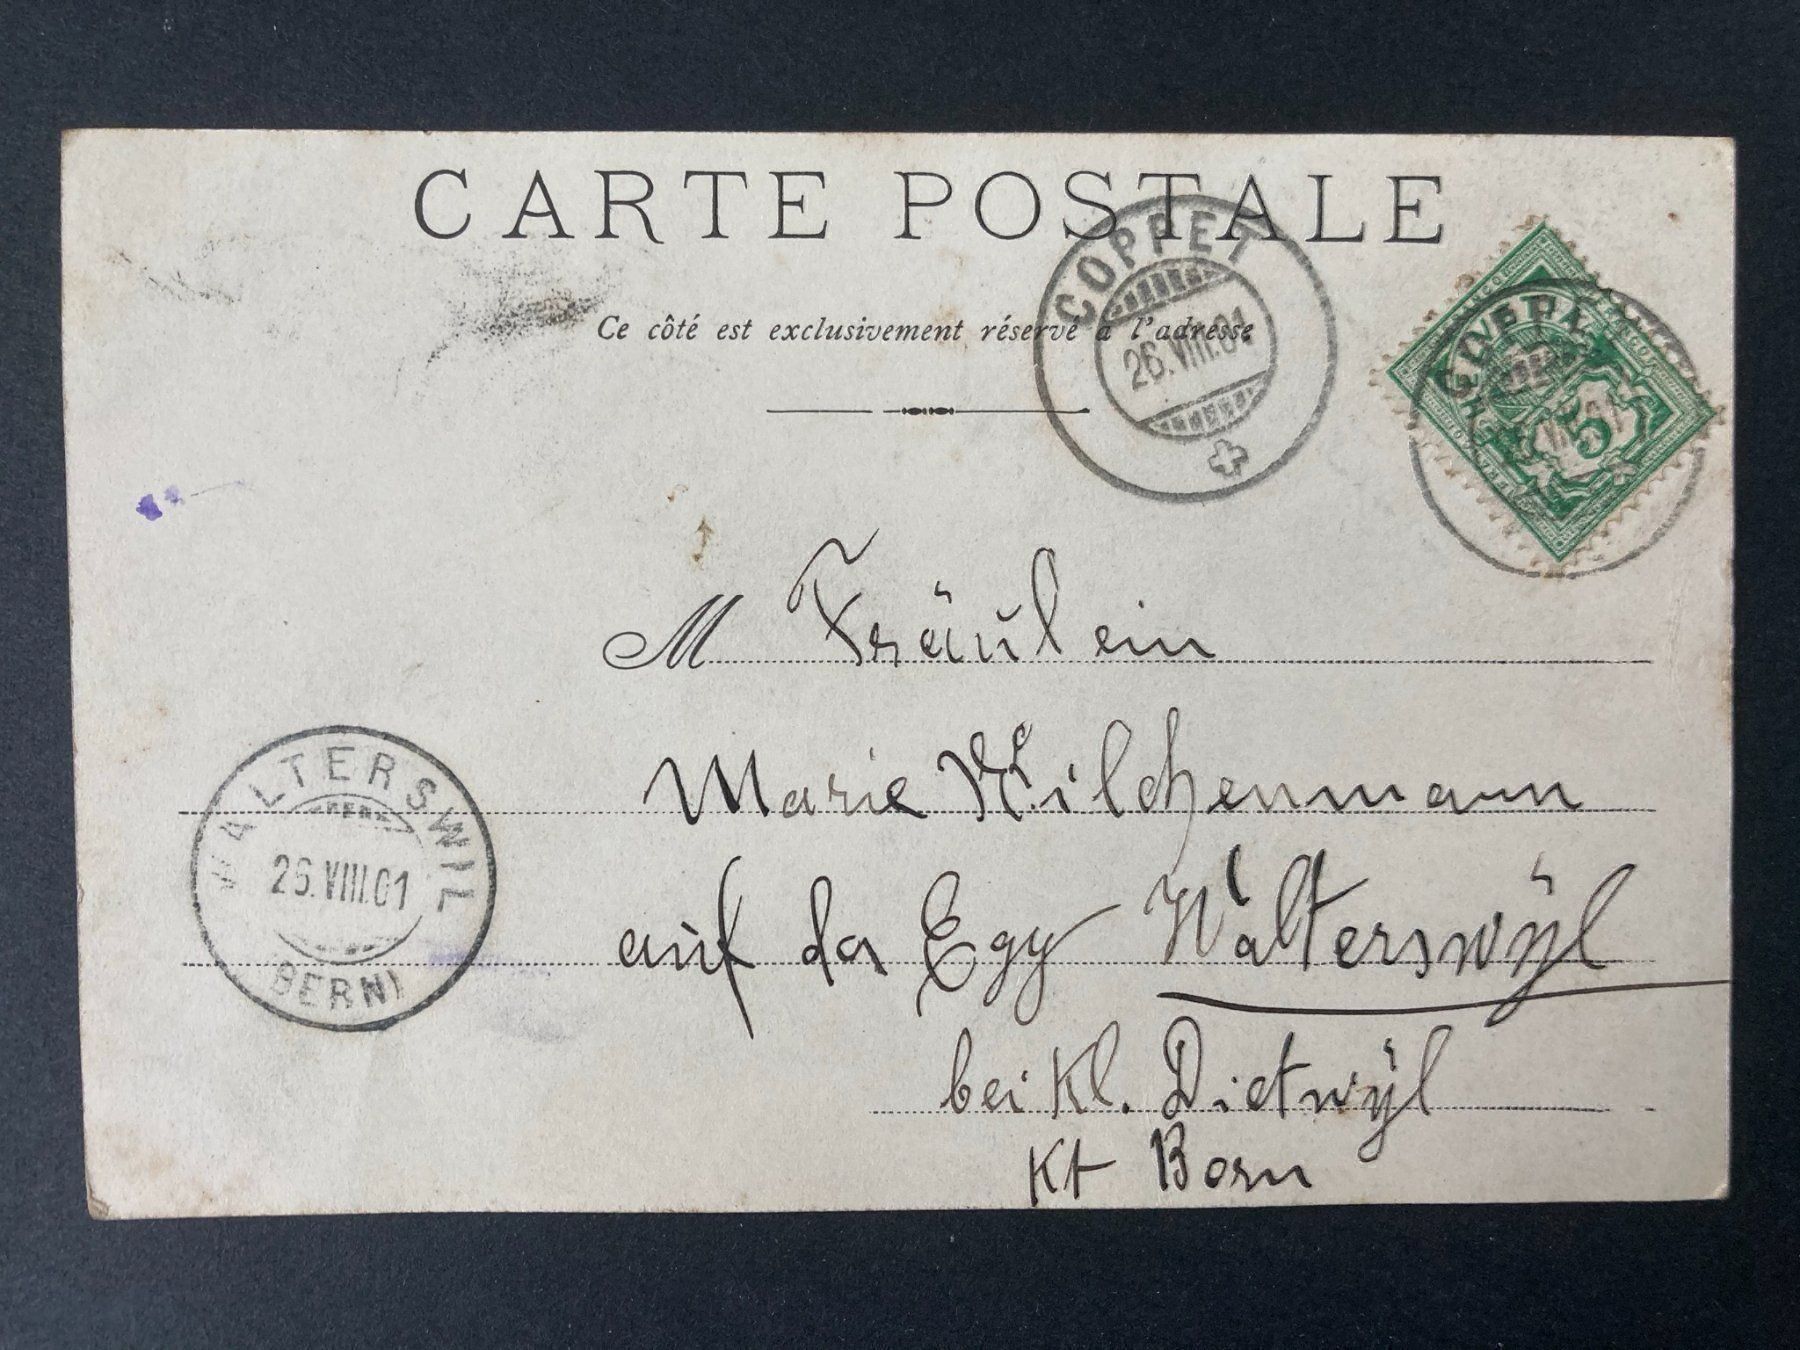 CARTE POSTALE
COPPET
26.VIII.01
Ce côté est exclusivement réservé à l'adresse
5
M Fräulein
Marie Hilchenmann
auf der Egg Walterswÿl
bei Kl. Dietwÿl
Kt Bern
WALTERSWIL
26.VIII.01
(BERN)